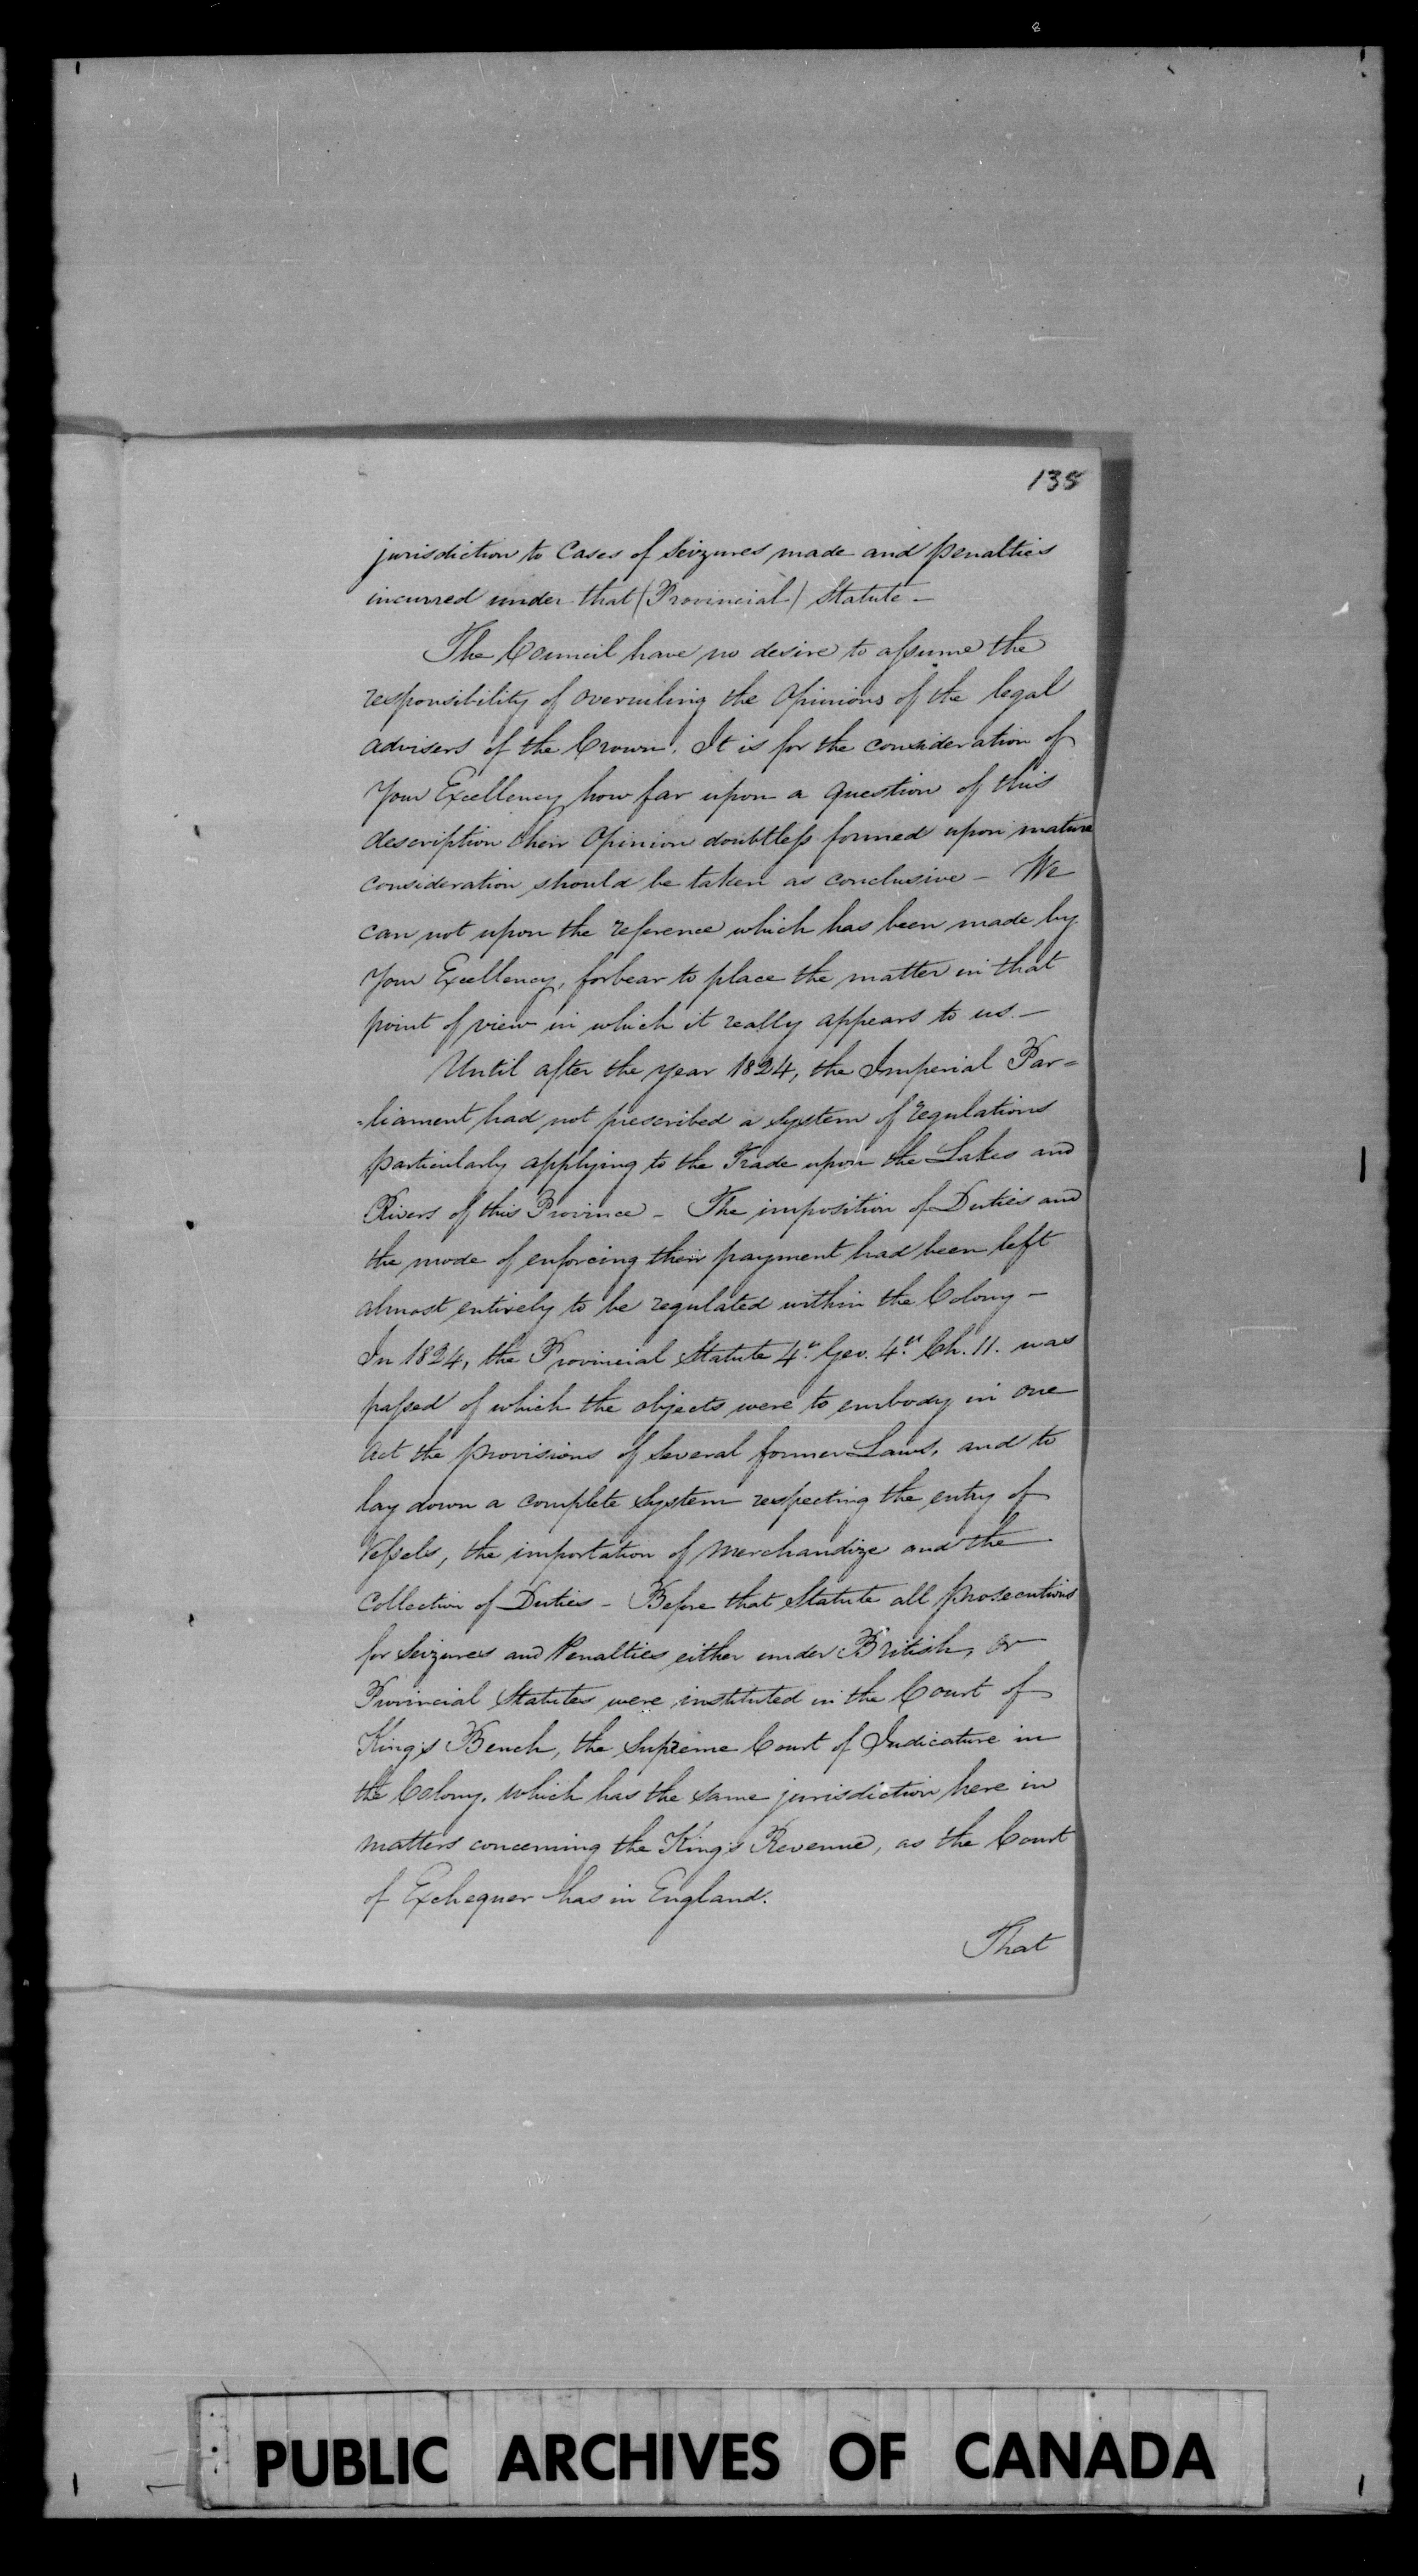 8
135
jurisdiction to Cases of Seizures made and penalties
incurred under that (Provincial) Statute –
The Council have no desire to assume the
responsibility of overruling the Opinions of the legal
advisers of the Crown. It is for the consideration of
Your Excellency how far upon a question of this
description their Opinion doubtless formed upon mature
consideration should be taken as conclusive – We
can not upon the reference which has been made by
Your Excellency, forbear to place the matter in that
point of view in which it really appears to us. –
Until after the year 1824, the Imperial Par=
=liament had not prescribed a system of regulations
particularly applying to the Trade upon the Lakes and
Rivers of this Province – The imposition of Duties and
the mode of enforcing their payment had been left
almost entirely to be regulated within the Colony –
In 1824, the Provincial Statute 4th. Geo. 4th. Ch. 11. was
passed of which the objects were to embody in one
Act the provisions of several former Laws, and to
lay down a complete system respecting the entry of
Vessels, the importation of Merchandize and the
Collection of Duties – Before that Statute all prosecutions
for Seizures and Penalties either under British, or
Provincial Statutes were instituted in the Court of
King's Bench, the Supreme Court of Judicature in
the Colony, which has the same jurisdiction here in
matters concerning the King's Revenue, as the Court
of Exchequer has in England.
That
PUBLIC ARCHIVES OF CANADA